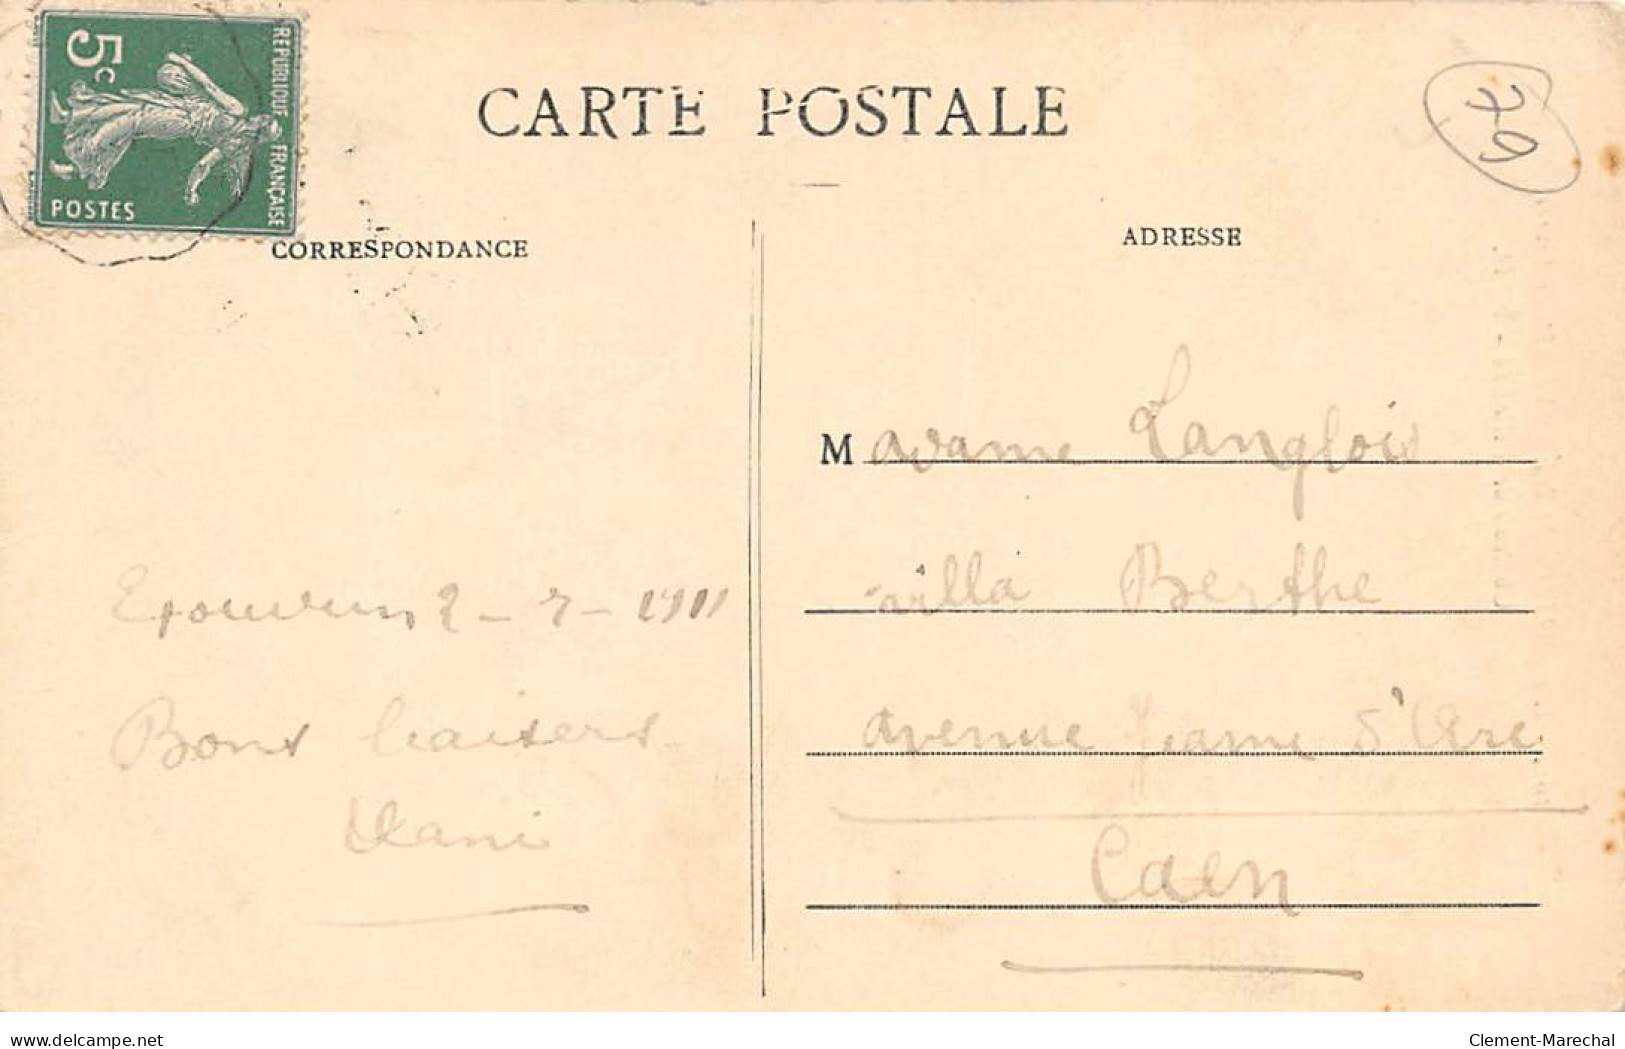 5c
REPUBLIQUE FRANÇAISE
POSTES
CARTE POSTALE
79
CORRESPONDANCE
ADRESSE
2 - 7 - 1911
Bons baisers
Madame Langlois
villa Berthe
avenue Jeanne d'Arc
Caen
delcampe.net
Clement-Marechal